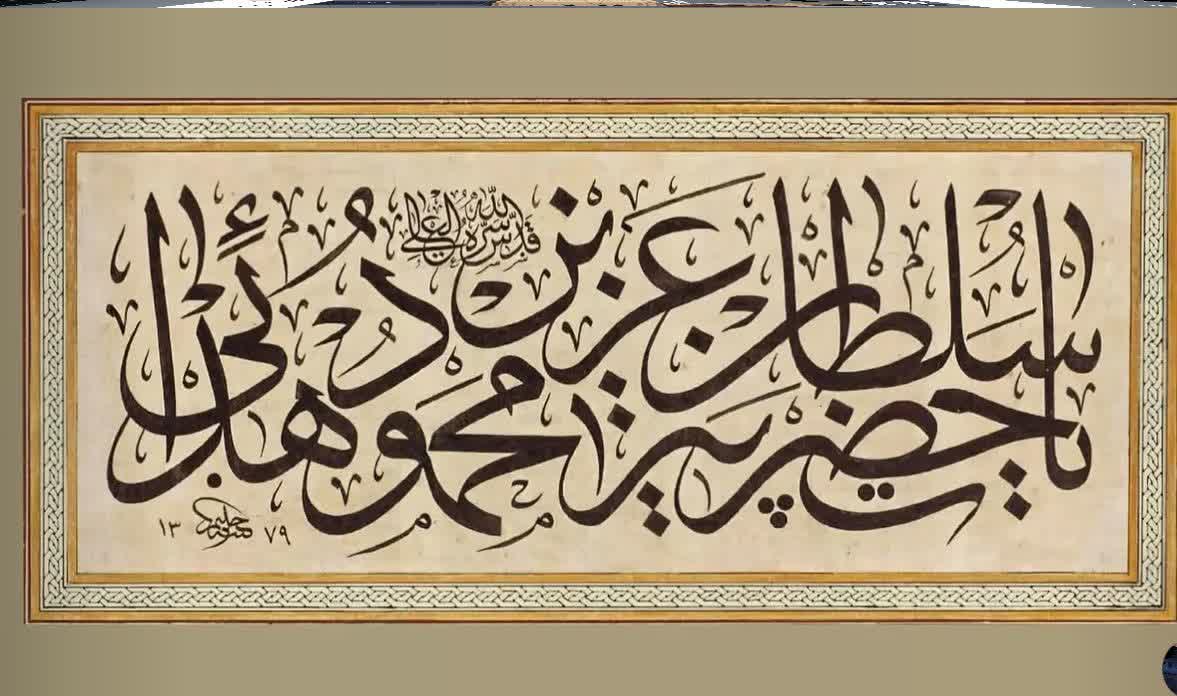 يا حضرت پير سلطان عزيز محمود هدائى
قدس الله سره العالى
حليم ١٣٧٩